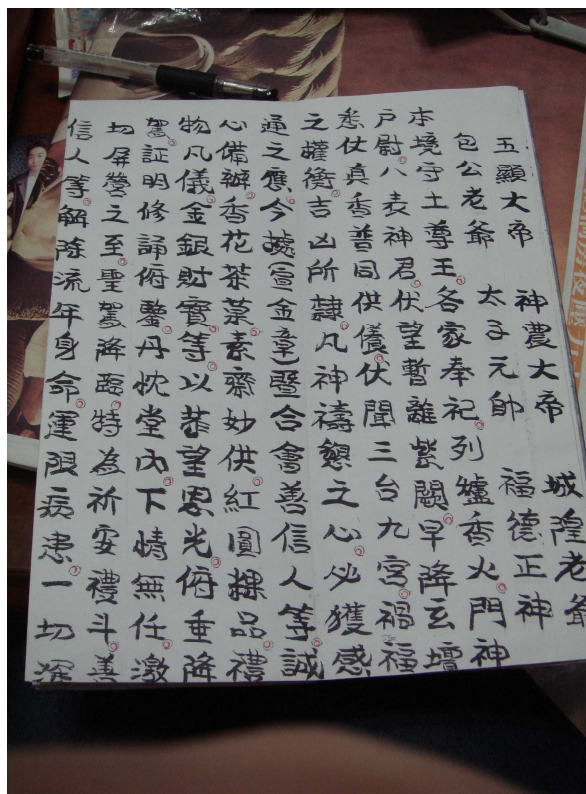 五顯大帝 神農大帝 城隍老爺
包公老爺 太子元帥 福德正神
本境守土尊王各家奉祀列爐香火門神
戶尉八表神君伏望暫離紫闕早降玄壇
悉仗真香普同供儀伏聞三台九宮禍福
之權衡吉凶所隸凡神禱懇之心必獲感
通之應今據宣金章暨合會善信人等誠
心備辦香花茶菓素齋妙供紅圓粿品禮
物凡儀金銀財寶等以恭望恩光俯垂降
駕証明修誦俯鑒丹忱堂內下情無任激
切屏營之至聖駕降臨特為祈安禮斗善
信人等解除流年身命運限病患一切